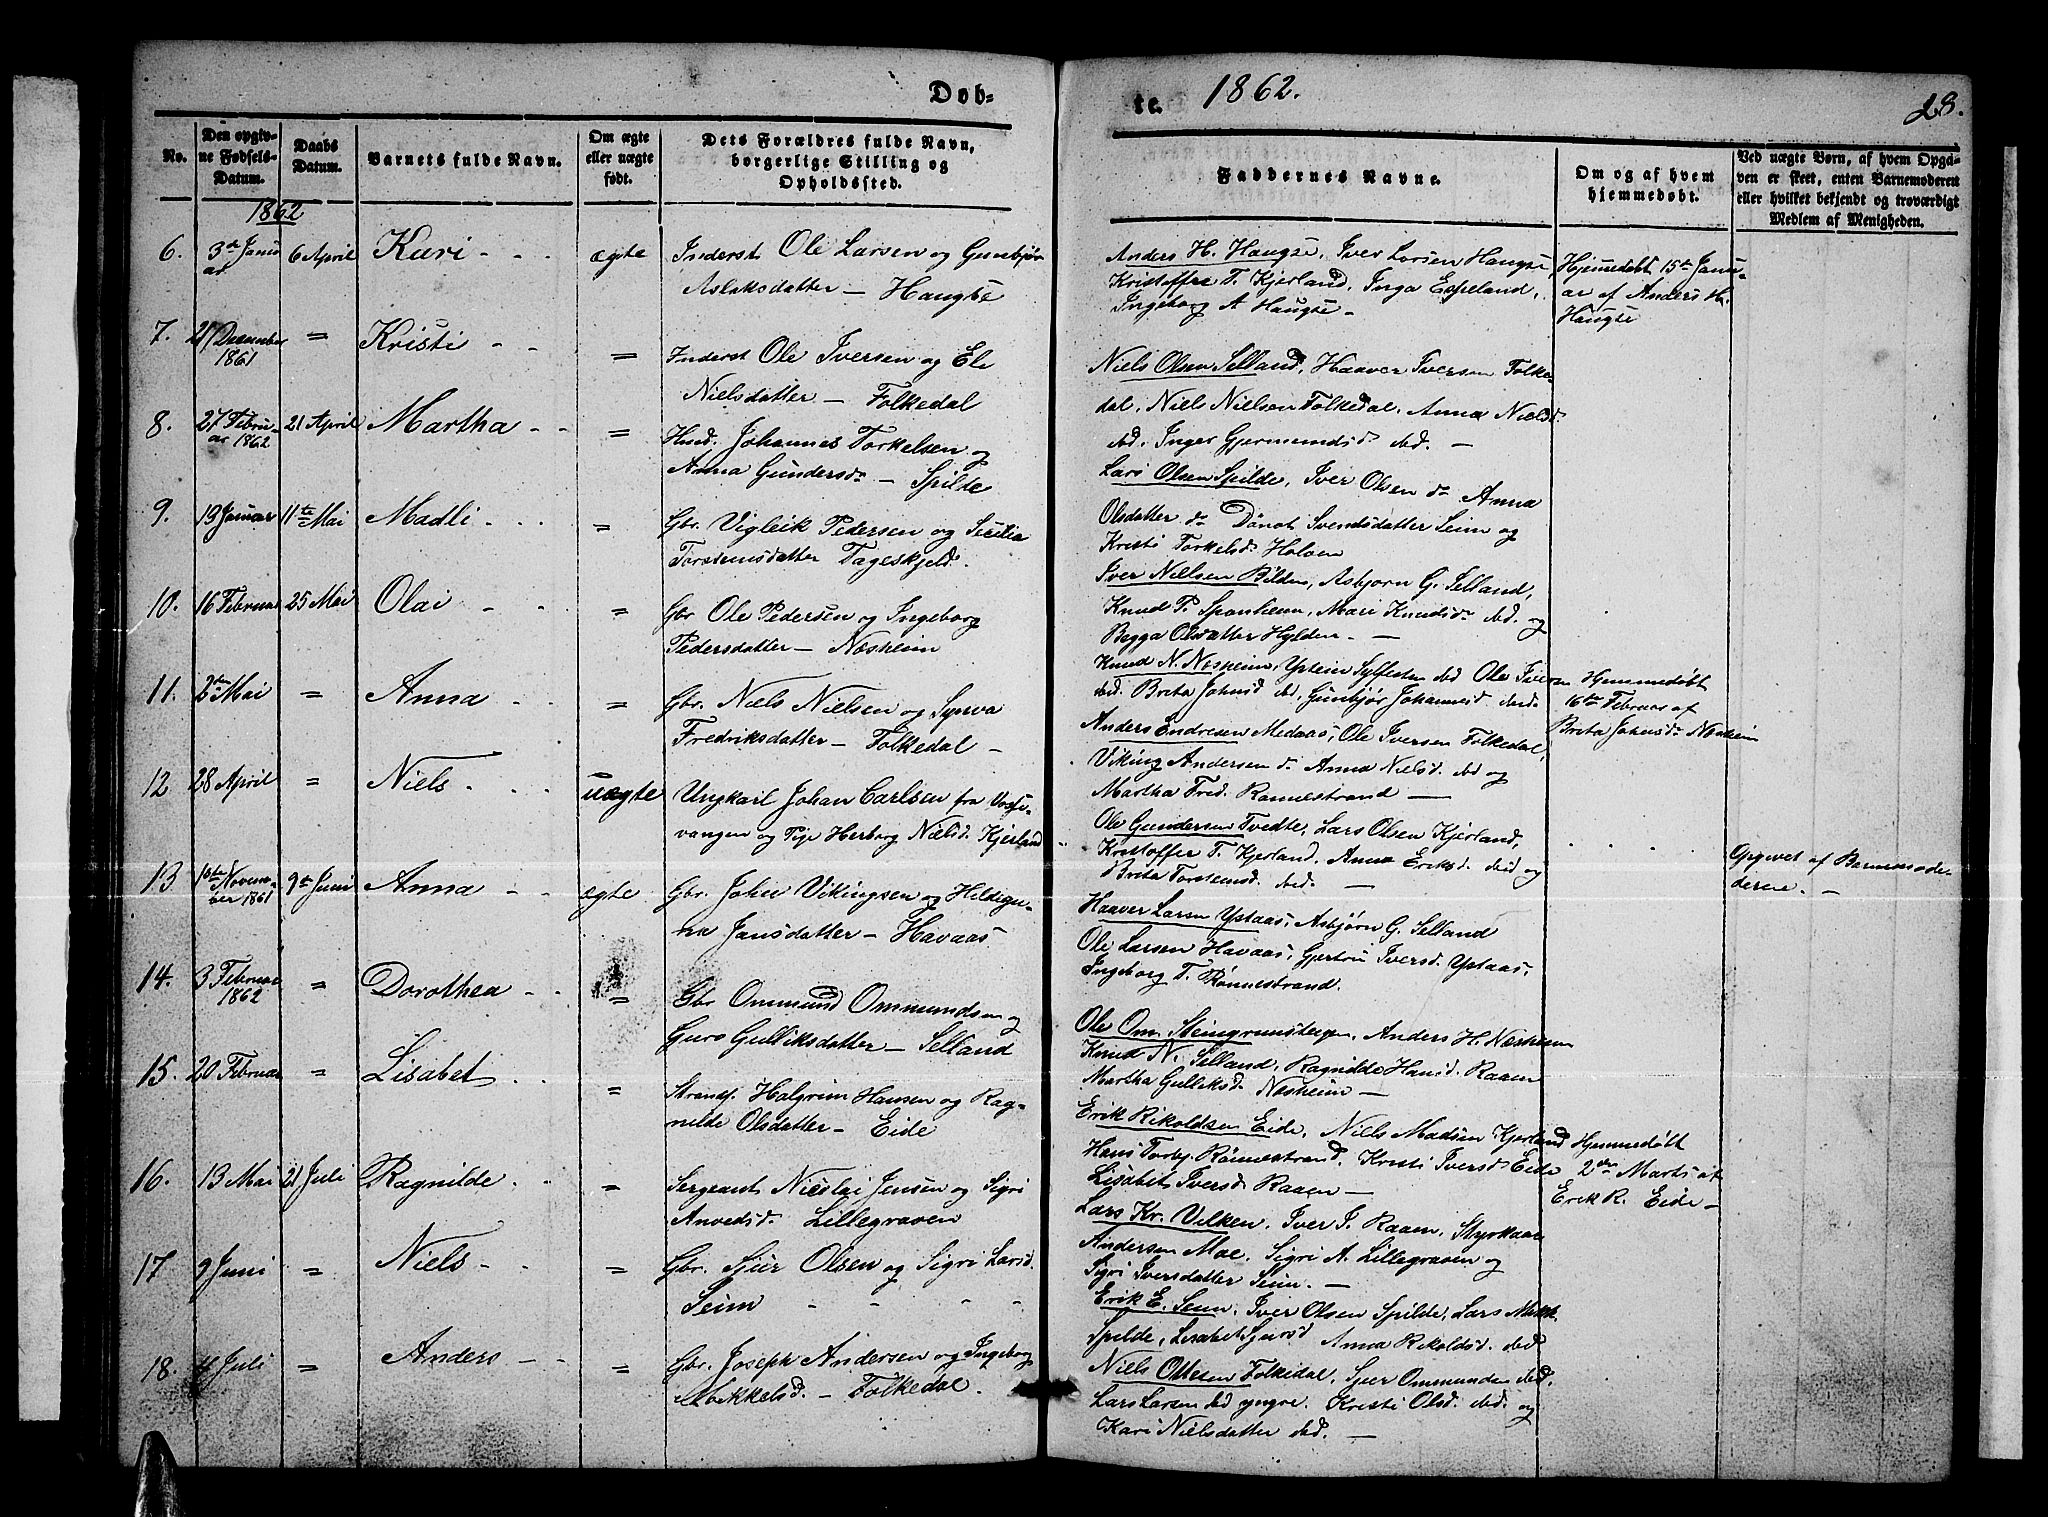 Døb-
No.
Den opgiv-
ne Fødsels-
Datum.
Daabs
Datum.
Barnets fulde Navn.
Om ægte
eller uægte
født.
Dets Forældres fulde Navn,
borgerlige Stilling og
Opholdssted.
1862
6. 3de Janu-
ar 6 April Kari - - - ægte Inderst Ole Larsen og Gunbjør
Aslaksdatter — Haugse
7. 21 Desember
1861 = Kristi - - = Inderst Ole Iversen og Ele
Nielsdatter — Folkedal
8. 27 Febru-
ar 1862 21 April Martha - - = Huusd. Johannes Torkelsen og
Anna Gundersdr — Spilde
9. 13 Januar 11te Mai Madli - - - = Gbr. Vigleik Pedersen og Secilia
Torstensdatter
10. 16 Februar 25 Mai Olai - - = Gbr Ole Pedersen og Ingeborg
Pedersdatter — Næsheim
11. 2den Mai = Anna - - = Gbr. Niels Nielsen og Synva
Fredriksdatter — Folkedal —
12 28 April = Niels - - - uægte Ungkarl Johan Carlsen fra Vosse-
vangen og Pige Herborg Nielsd. Kjerland
13 1ste Novem-
ber 1861 9de Juni Anna - - ægte Gbr. John Vikingsen og Hildigu-
na Jansdatter — Havaas
14. 3 Februar
1862 = Dorothea - - = Gbr Ommund Ommundsen og
Guro Gulliksdatter — Selland
15. 20 Februar = Lisabet - - = Strands. Halgrim Hansen og Rag-
nilde Olsdatter — Eide
16. 13 Mai 21 Juli Ragnilde - - = Sergeant Nicolai Jensen og Sigri
Anvedsd. Lillegraven
17 9 Juni = Niels - - = Gbr. Sjur Olsen og Sigri Larsd.
Seim - - - -
18. 4 Juli = Anders - - = Gbr. Joseph Andersen og Ingeborg
Mikkelsd. — Folkedal.
te. 1862.
28.
Faddernes Navne.
Om og af hvem
hjemmedøbt.
Ved uægte Børn, af hvem Opga-
ven er skeet, enten Barnemoderen
eller hvilket bekjendt og troværdigt
Medlem af Menigheden.
Anders H. Haugse, Iver Larsen Haugse,
Kristoffer T. Kjerland, Inga Espeland,
Ingeborg A Haugse —
Hjemmedøbt 15de Janu-
ar af Anders H.
Haugse
Niels Olsen Selland, Haaver Iversen Folke-
dal, Niels Nielsen Folkedal, Anna Nielsd.
ibd. Inger Gjermundsd ibd. —
Lars Olsen Spilde, Iver Olsen do Anna
Olsdatter do Svendsdatter Seim og
Kristi Torkelsd. Holven
Iver Nielsen Bilden, Asbjørn G. Selland,
Knud P. Spanheim, Mari Knudsdr ibd. og
Begga Olsdatter Hylden — —
Knud N. Næsheim, Ystein Sylfesten ibd Ole Iversen
ibd. Brita Johnsd ibd, Gunbjør Johannesd ibid.
Hjemmedøbt
16de Februar af
Brita Johnsdr Næsheim
Anders Endresen Medaas, Ole Iversen Folkedal,
Viking Andersen do Anna Nielsd. ibd og
Martha Fred. Rønnestrand —
Ole Gundersen Tvedte, Lars Olsen Kjerland,
Kristoffer T. Kjerland, Anna Eriksd. ibid og
Brita Torstensd. ibd. —
Opgivet af Barnemo-
deren. —
Haaver Larsen Ystaas, Asbjørn G. Selland
Ole Larsen Havaas, Gjertru Iversd. Ystaas,
Ingeborg T. Rønnestrand.
Ole Om. Steingrimstegen, Anders H. Næsheim
Knud N. Selland, Ragnilde Hansd. Raaen
Martha Gulleksd. Næsheim —
Erik Rikoldsen Eide, Niels Madsen Kjerland
Hans Torbj. Rønnestrand, Kristi Iversd Eide
Lisabet Iversd. Raaen —
Hjemmedøbt
2den Marts af
Erik R. Eide —
Lars Kr. Vilken, Iver I. Raaen, Styrkaar
Andersen Moe, Sigri A. Lillegraven og
Sigri Iversdatter Seim. —
Erik E. Seim, Iver Olsen Spilde, Lars Mikk.
Spilde, Lisabet Sjursd Anna Rikoldsd. ibd
Niels Olsen Folkedal, Sjur Ommunds. ibd,
Lars Larsen ibd yngre. Kristi Olsd. ibd. og
Kari Nielsdatter ibd. —